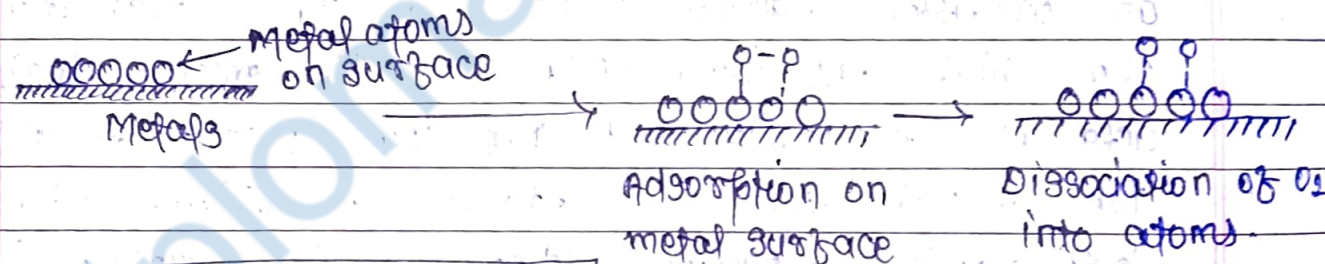 Metal atoms
on surface
Metals
Adsorption on
metal surface
Dissociation of O2
into atoms.